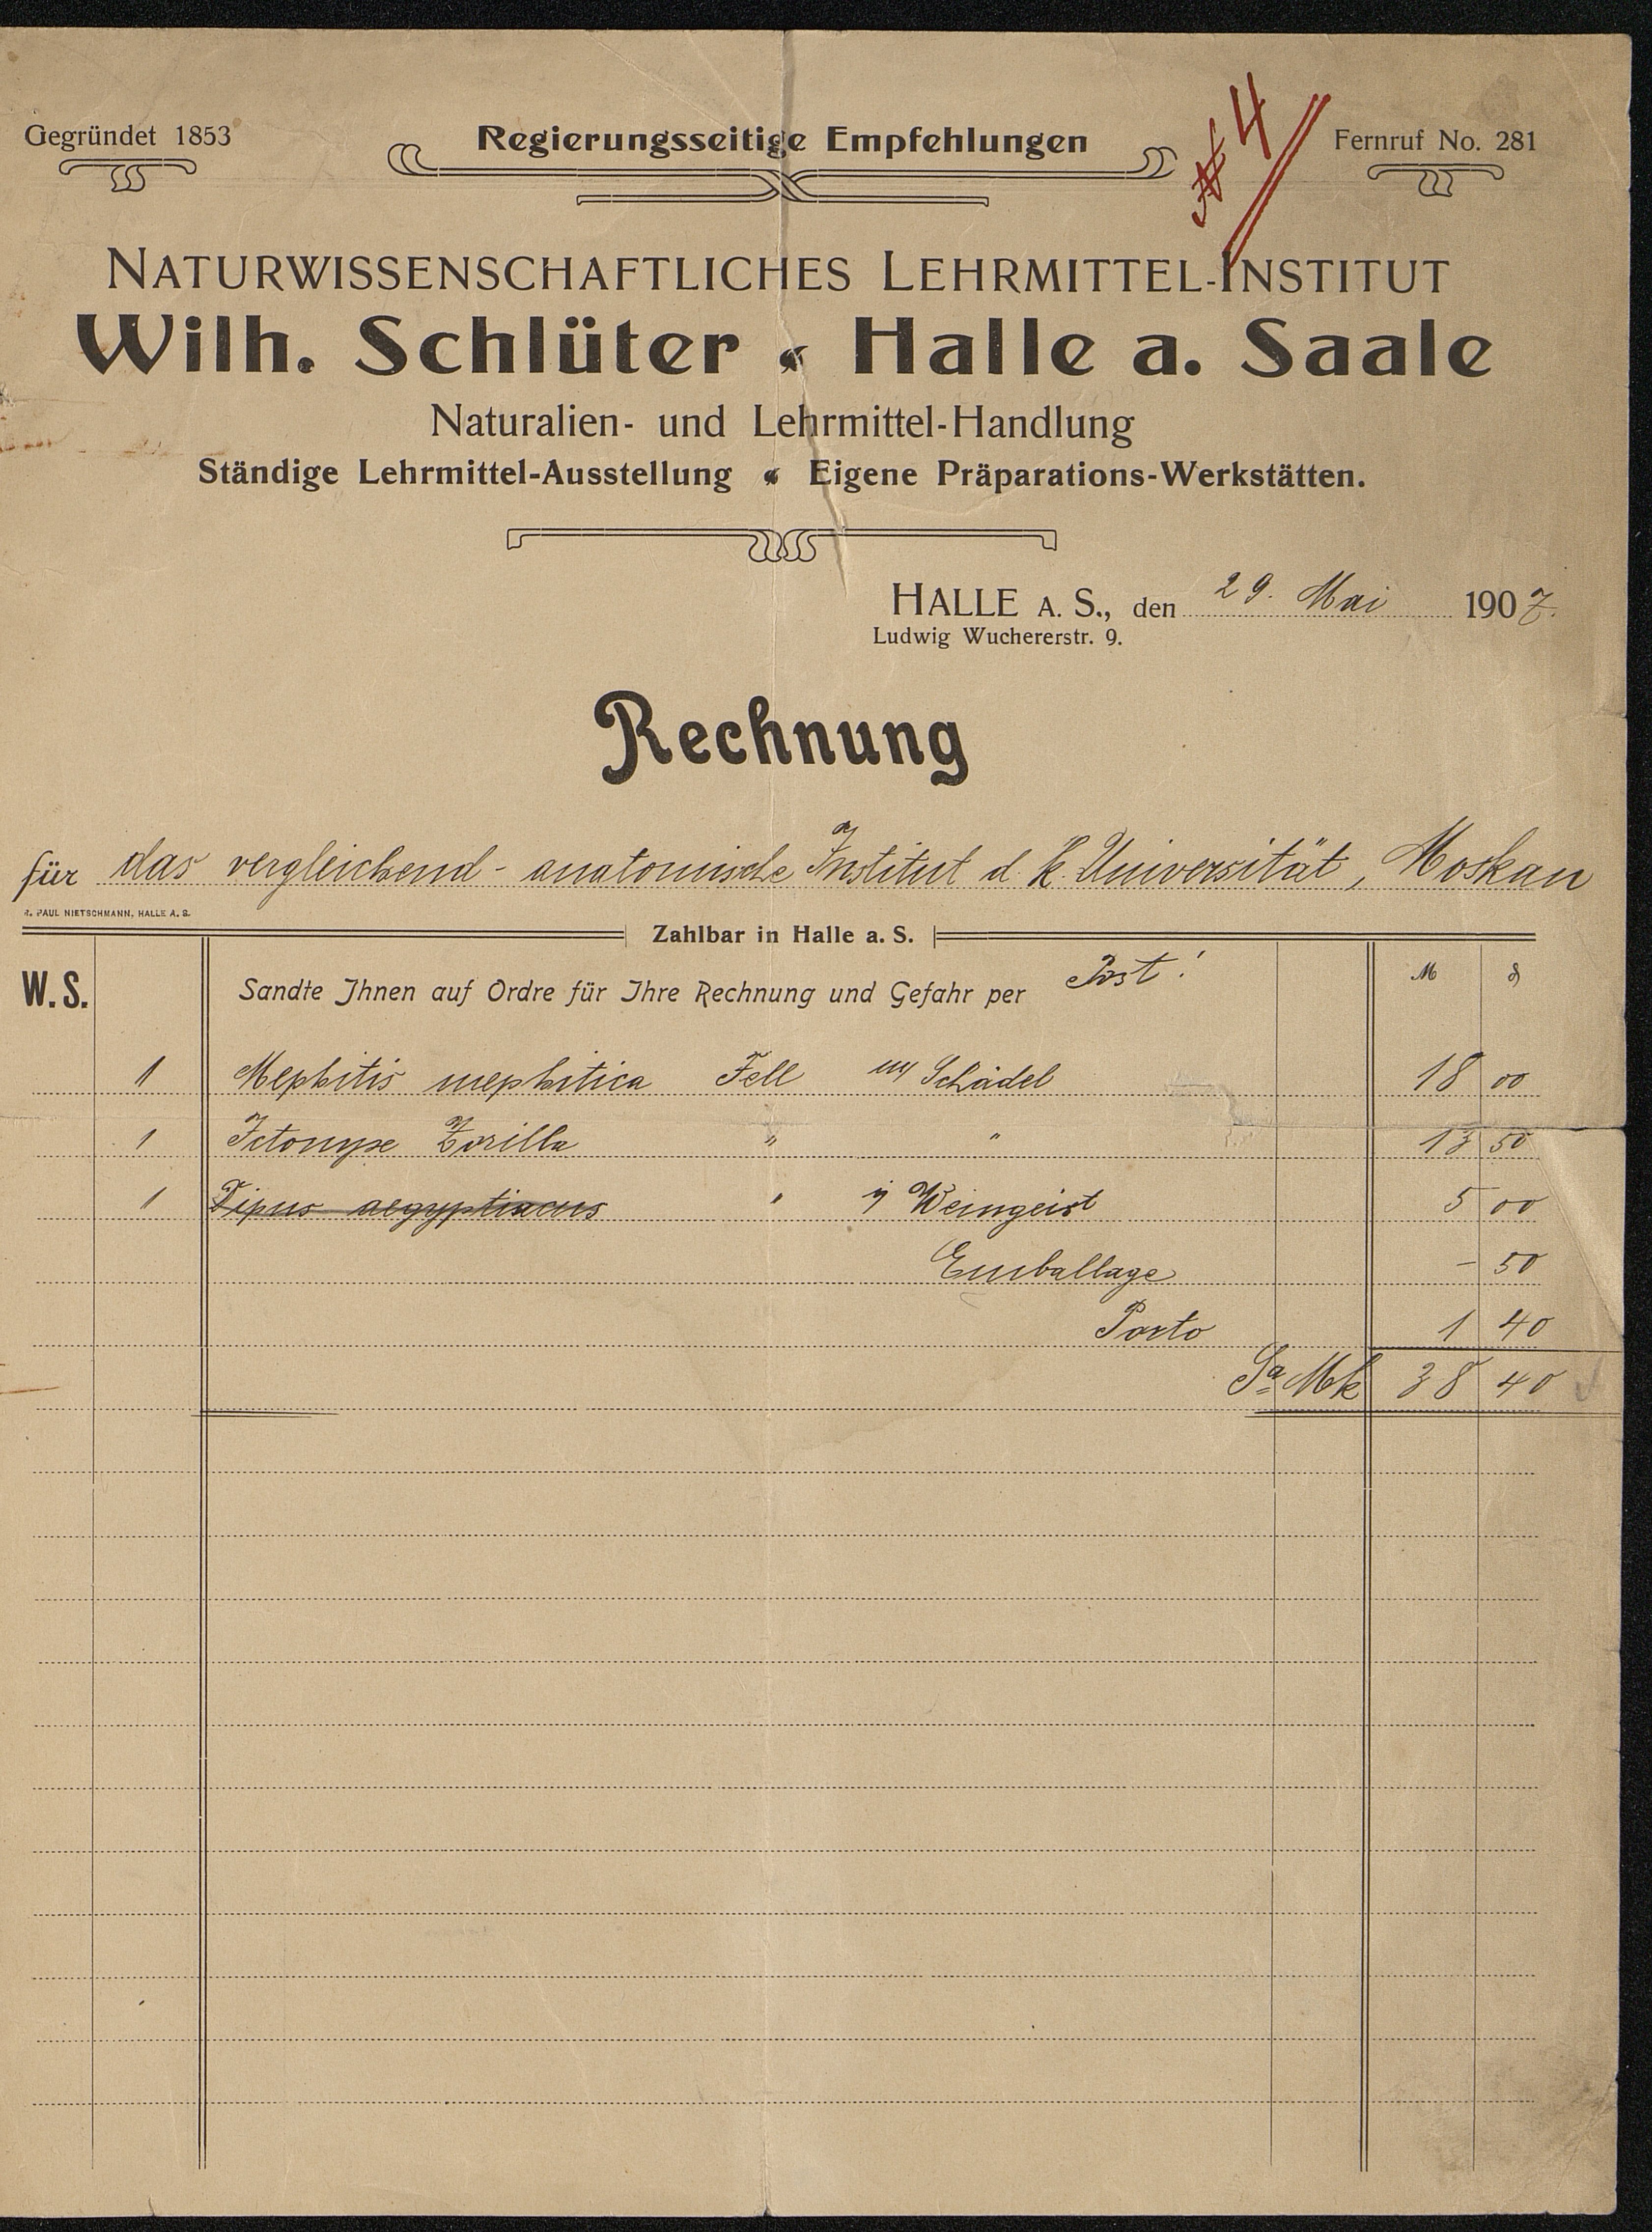 № 4
Gegründet 1853 Regierungsseitige Empfehlungen Fernruf No. 281
NATURWISSENSCHAFTLICHES LEHRMITTEL-INSTITUT
Wilh. Schlüter Halle a. Saale
Naturalien- und Lehrmittel-Handlung
Ständige Lehrmittel-Ausstellung Eigene Präparations-Werkstätten.
HALLE A. S., den 29. Mai 1907.
Ludwig Wuchererstr. 9.
Rechnung
für das vergleichend-anatomische Institut d. K. Universität, Moskau
R. PAUL NIETSCHMANN, HALLE A. S.
Zahlbar in Halle a. S.
W. S. Sandte Ihnen auf Ordre für Ihre Rechnung und Gefahr per Post! M ₰
1 Mephitis mephitica Fell m/ Schädel 18 00
1 Ictonyx Zorilla " " 13 50
1 Dipus aegyptiacus " i/ Weingeist 5 00
Emballage - 50
Porto 1 40
Sa Mk 38 40